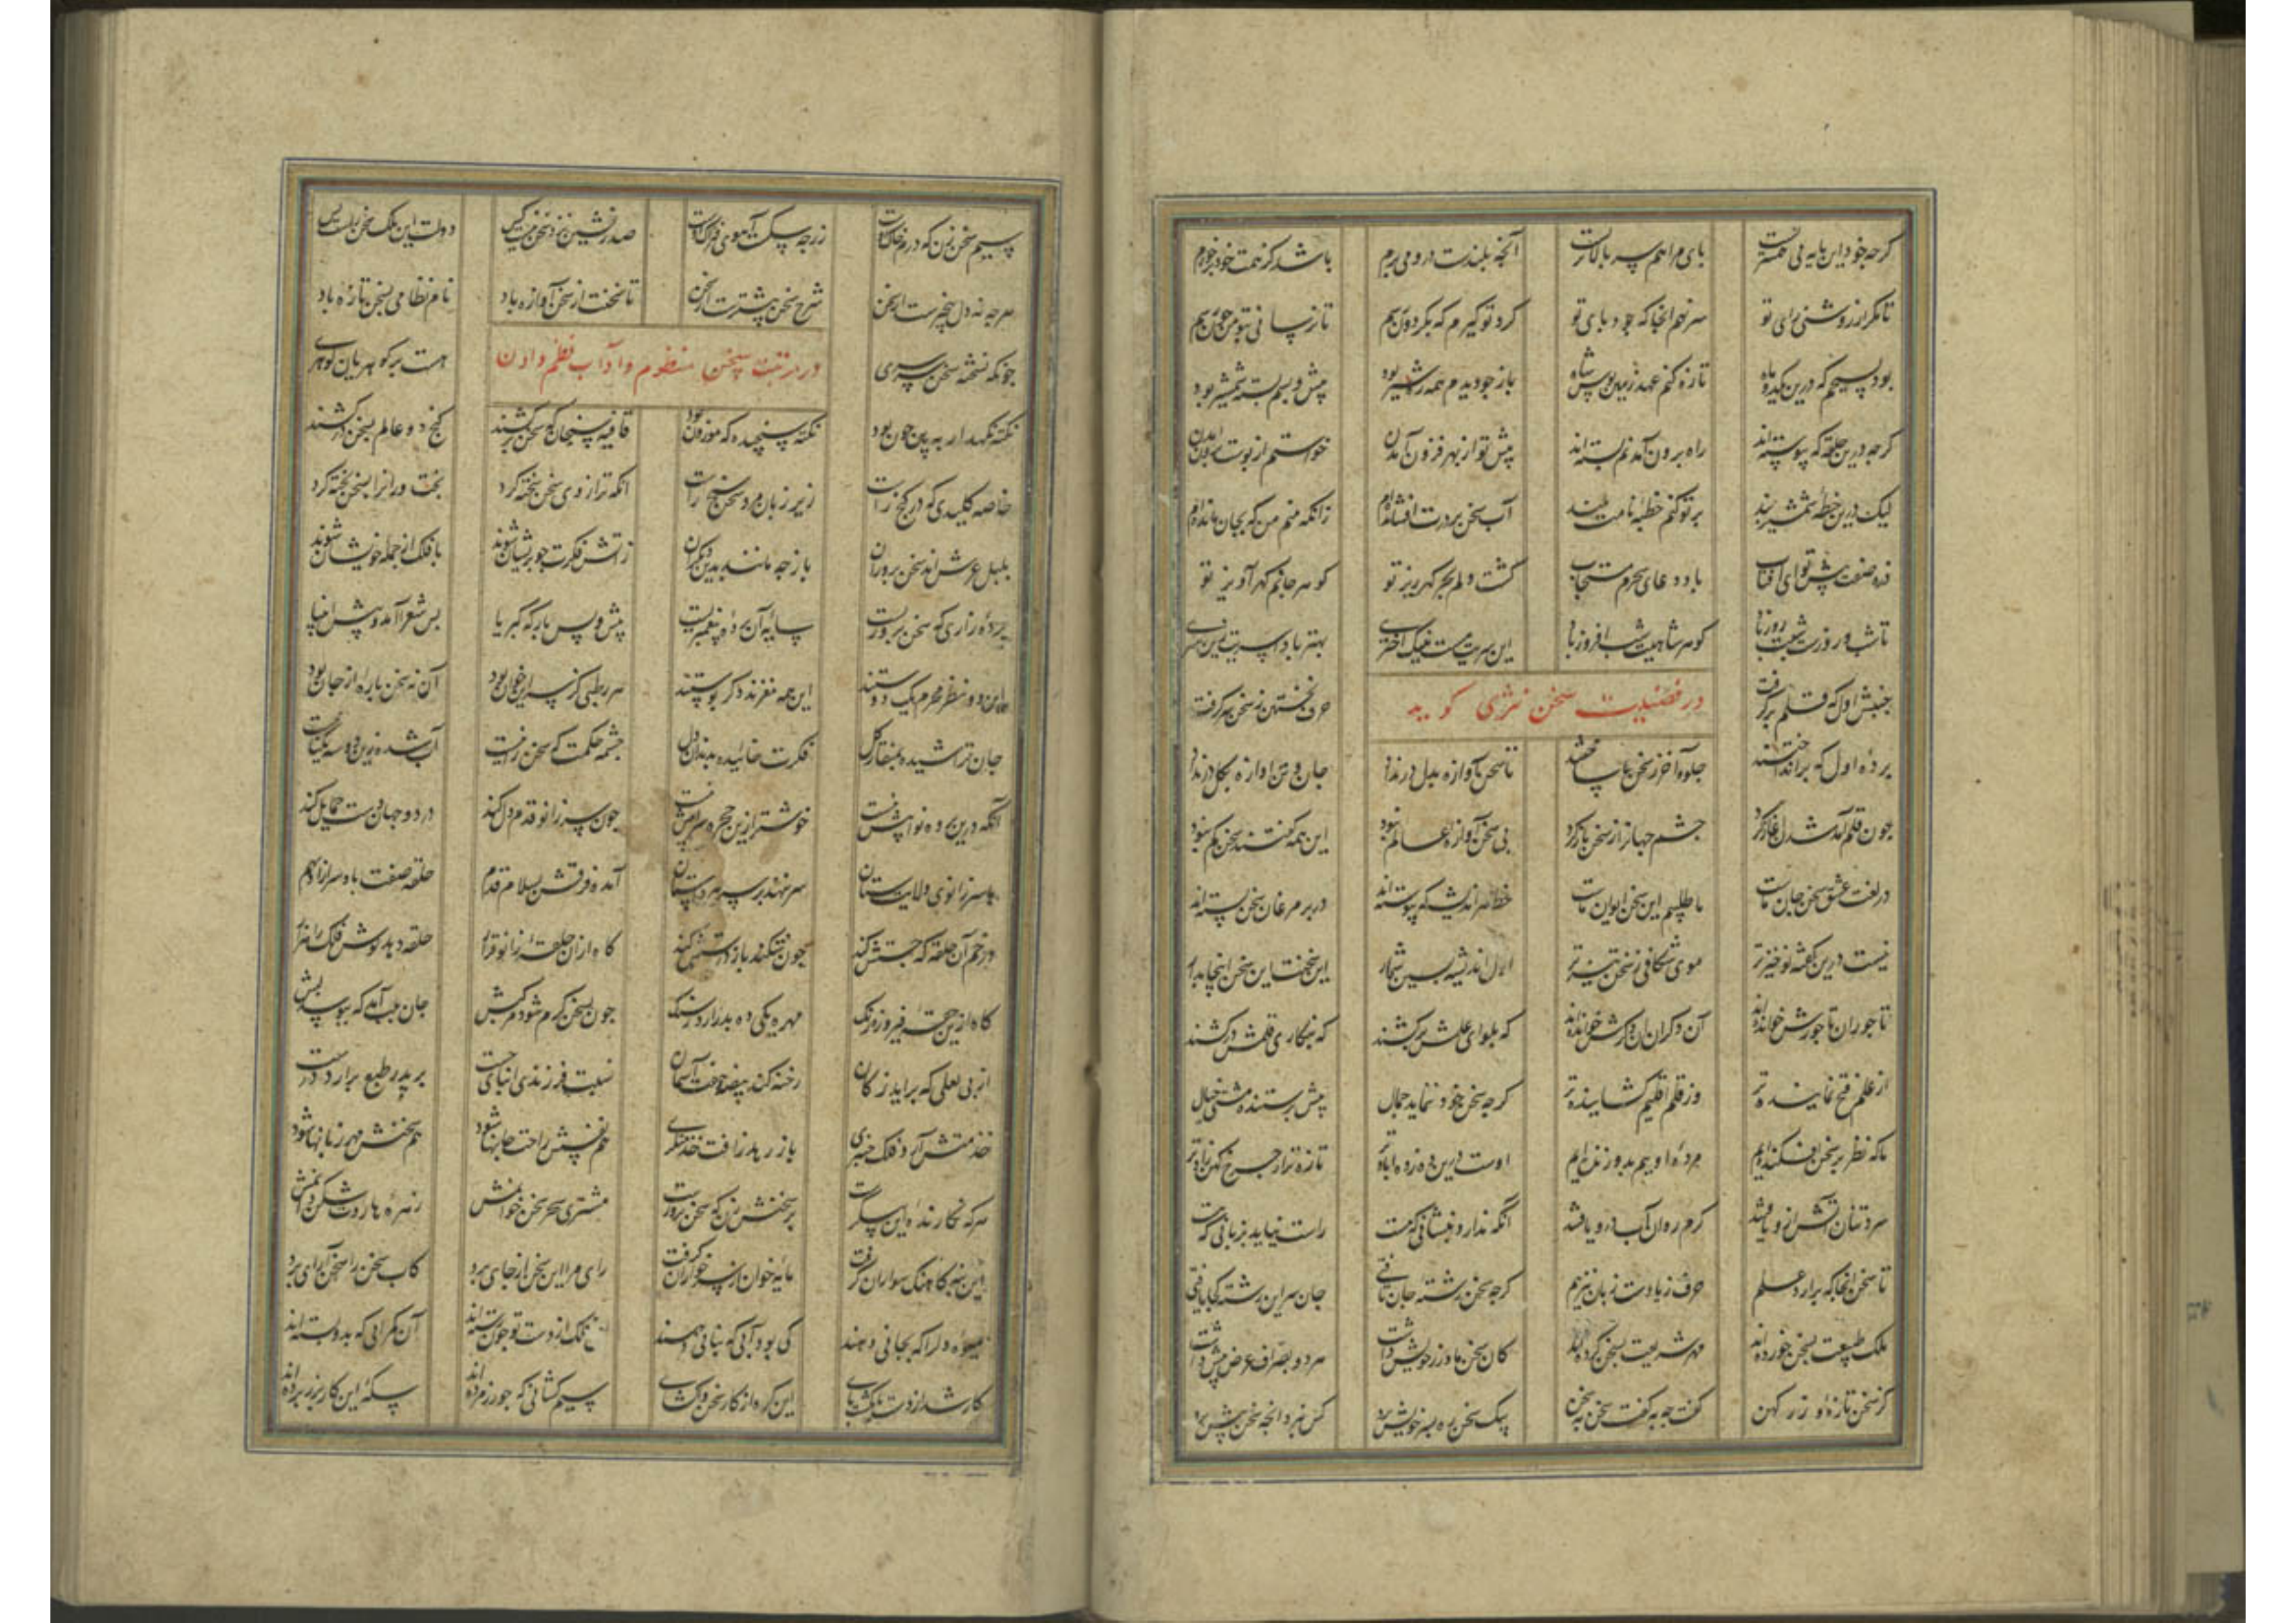 کرجه خود این پایه بی همسریست پای مرا هم سر بالاتریست آنجه بلندست درو می پرم باشد کز همت خود برخورم
تا مکر از روشنی رای تو سر نهم انجا که بود پای تو کرد تو کیرم که بکردون رسم تا نرسانی تو مرا چون رسم
بود بسیجم که درین یکدو ماه تازه کنم عهد زمین بوس شاه باز چو دیدم همه ره شیر بود پیش و پسم بسته شمشیر بود
کرجه درین حلقه که پیوسته اند راه برون آمدنم بسته اند پیش تو از بهر فزون آمدن خواستم از پوست برون آمدن
لیک درین خطه شمشیر بند بر تو کنم خطبه نامت بلند آب سخن بر درت افشانده ام زانکه منم من که بجان مانده ام
ذره صفت پیش تو ای آفتاب باد دعای سحرم مستجاب کشت دلم بحر کهر ریز تو کوهر جانم کهر آویز تو
تا شب و روزست شبت روز باد کوهر شاهیت شب افروز باد این سریت هست نیک اختری بهتر باد آن سریت زین سری
جنبش اول که قلم برکرفت حرف نخستین ز سخن درکرفت
در فضیلت سخن نثری کوید
پرده اول که برانداختند جلوه آخر ز سخن ساختند تا سخن آوازه بدل در نداد جان و تن آوازه بکل در نداد
چون قلم آمد شدن آغاز کرد چشم جهانرا ز سخن باز کرد بی سخن آوازه عالم نبود این همه کفتند سخن کم نبود
در لغت عشق سخن جان ماست ما طلسمیم این سخن ایوان ماست خط هر اندیشه که پیوسته اند در پر مرغان سخن بسته اند
نیست درین کهنه نوخیزتر موی شکافی ز سخن تیزتر اول اندیشه پسین شمار این سخنست این سخن اینجا بدار
تاجوران تاجورش خوانده اند آن دکران آن دکرش خوانده اند که بلوای علمش برکشند که بنکاری قلمش درکشند
از علم فتح نماینده تر وز قلم اقلیم کشاینده تر کرجه سخن خود ننماید جمال پیش پرستنده مشتی خیال
ما که نظر بر سخن افکنده ایم مرده اوییم بدو زنده ایم اوست درین ده زده آبادتر تازه تر از چرخ کهن زادتر
سردتنان آتش ازو یافتند کرم روان آب درو یافتند آنکه ندارد ز نشانی که هست راست نیاید بزبانی که هست
تا سخن آنجا که برآرد علم حرف زیادست زبان نیز هم کرجه سخن رشته جان تافتی جان سر این رشته کجا یافتی
ملک طبیعت بسخن خورده اند مهر شریعت بسخن کرده اند کان سخن ما و زر خویش داشت هر دو بصراف عرض پیش داشت
کز سخن تازه و زر کهن کفت چه به کفت سخن به سخن پیک سخن ره بسر خویش برد کس نبرد آنچه سخن پیش برد
سیم سخن زن که درم خاک اوست زر چه سکست آهوی فتراک اوست صدرنشین تر ز سخن نیست کس دولت این ملک سخن راست بس
هر چه نه دل بیخبرست از سخن شرح سخن بیشترست از سخن تا سخنست از سخن آوازه باد نام نظامی بسخن تازه باد
در مرتبت سخن منظوم و آداب نظم دادن
چونکه نسخته سخن سرسری هست بر کوهریان کوهری
نکته نکهدار ببین چون بود نکته سنجیده که موزون بود قافیه سنجان که سخن برکشند کنج دو عالم بسخن درکشند
خاصه کلیدی که در کنج راست زیر زبان مرد سخن سنج راست آنکه ترازوی سخن سخته کرد بخت ورانرا بسخن پخته کرد
بلبل عرش اند سخن پروران باز چه مانند بدین دیکران ز آتش فکرت چو پریشان شوند با فلک از جمله خویشان شوند
پرده رازی که سخن پروریست سایه آن پرده پیغمبریست پیش و پس بارکه کبریا پس شعرا آمد و پیش انبیا
این دو نظر محرم یک دوستند این همه مغزند دکر پوستند هر رطبی کز سر این خوان بود آن نه سخن پاره از جان بود
جان تراشیده بمنقار کل فکرت خاییده بدندان دل چشمه حکمت که سخن دانیست آب شده زین دو سه یکتاییست
آنکه درین پرده نواییش هست خوشتر ازین حجره سراییش هست چون سر زانو قدم دل کند در دو جهان دست حمایل کند
با سر زانوی ولایت ستان سر ننهد بر سر هر آستان آمده فرقش بسلام قدم حلقه صفت با و سر آرد بهم
در خم آن حلقه که جستش کند جون شکند باز درستش کند کاه از ان حلقه زانو قرار حلقه دهد کوش فلک را هزار
کاه ازین حقه فیروزه رنک مهره یکی ده بدر آرد ز سنک جون بسخن کرم شود مرکبش جان بلب آمد که ببوسد لبش
از پی لعلی که برآید ز کان رخنه کند بیضه هفت آسمان نسبت فرزندی ابیات چست بر پدر طبع برآرد درست
خدمتش آرد فلک چنبری باز رهد ز آفت خدمتکری هم نفسش راحت جانها شود هم سخنش مهر زبانها شود
هر که نکارنده این پیکرست بر سخنش زن که سخن پرورست مشتری سحر سخن خوانمش زهره هاروت شکن دانمش
این بنه کاهنک سواران کرفت پایه خوار از سر خواران کرفت رای مرا این سخن از جای برد کاب سخن را سخن آرای برد
میوه دلرا که بجانی دهند کی بود آبی که بنانی دهند ای فلک از دست تو چون رسته اند آن کمرانی که بدو بسته اند
کار شد از دست بانکشت پای این کره از کار سخن واکشای سیم کشانی که چو زر مرده اند سکه این کار بزر برده اند